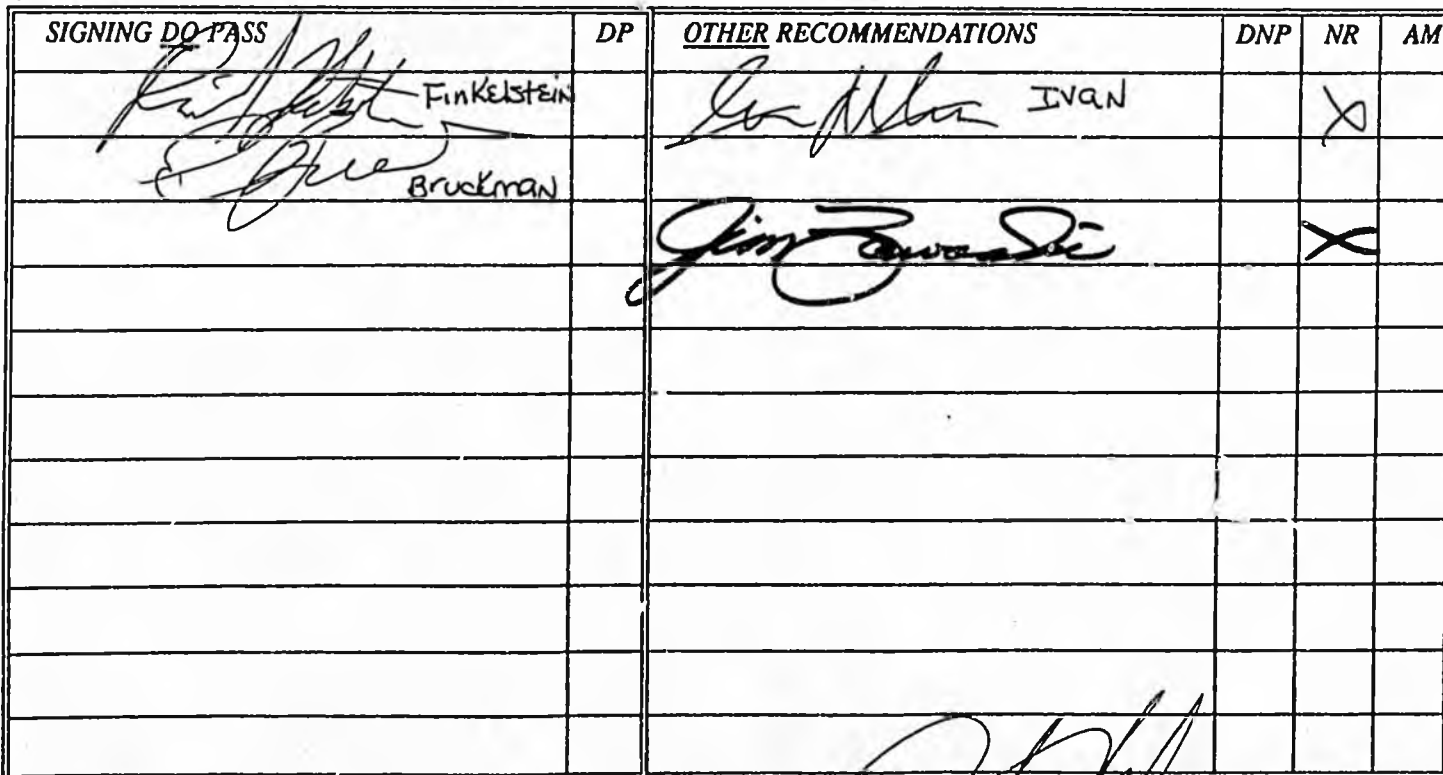 SIGNING DO PASS DP OTHER RECOMMENDATIONS DNP NR AM
Finkelstein IVAN X
Bruckman
Jim X